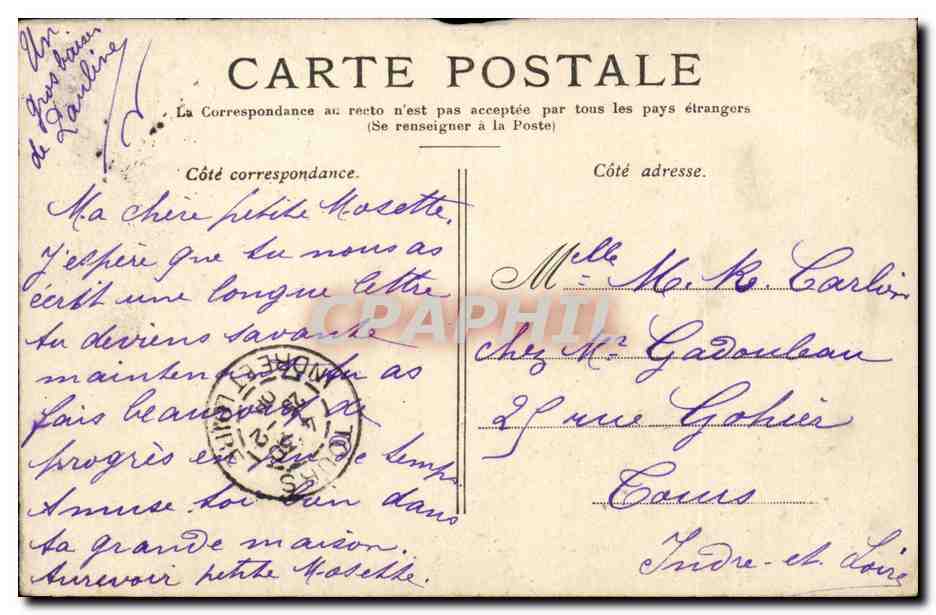 Un
gros baiser
de Pauline
CARTE POSTALE
La Correspondance au recto n'est pas acceptée par tous les pays étrangers
(Se renseigner à la Poste)
Côté correspondance.
Ma chère petite Mosette,
J'espère que tu nous as
écrit une longue lettre
tu deviens savante
maintenant tu as
fais beaucoup de
progrès en peu de temps
Amuse toi bien dans
ta grande maison.
Aurevoir petite Mosette.
Côté adresse.
Melle M. R. Carlier
chez Mr Gadouleau
25 rue Gohier
Tours
Indre-et-Loire
TOURS
INDRE ET LOIRE
CPAPHIL